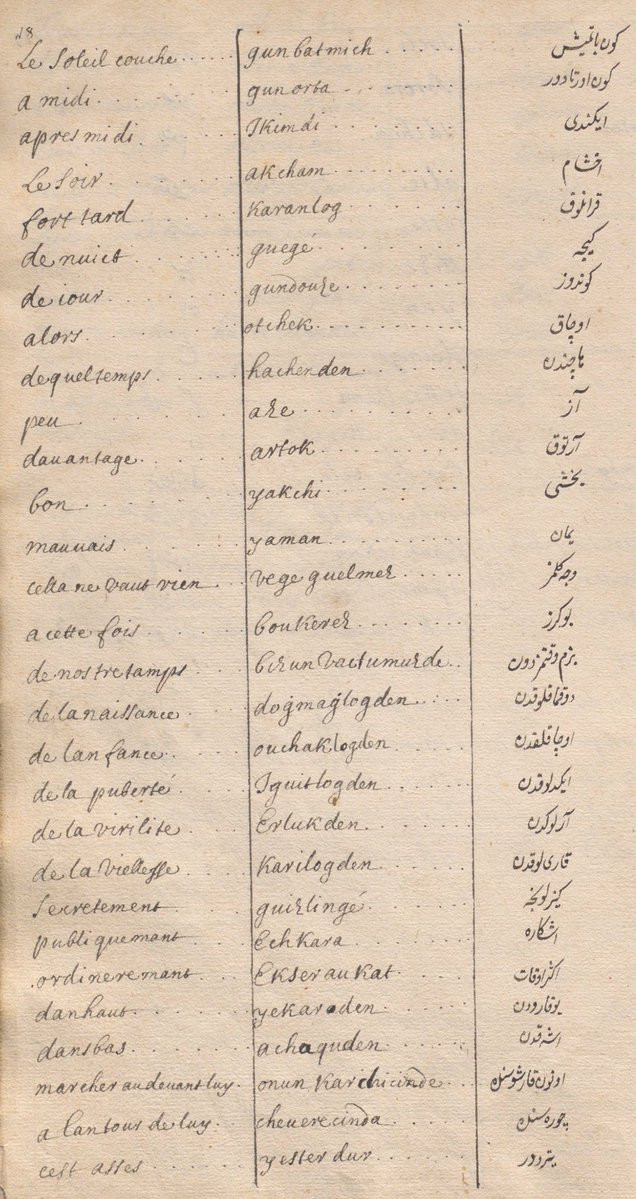 18
Le Soleil couche gunbatmich كون باتمیش
a midi gunorta كون اورتادور
apres midi Ikimdi ایكندی
Le Soir akcham اخشام
fort tard karanlog قرانلوق
de nuict guegé كیجه
de iour gundouze كوندوز
alors otchek اوچاق
de quel temps hachenden هاچندن
peu aze آز
dauantage artok آرتوق
bon yakchi یخشی
mauuais yaman یمان
cella ne vaut rien vege guelmez وجه كلمز
a cette fois boukerez بوكرز
de nostre tamps bizun vactumuzde بزم وقتمزدون
de la naissance doğmağlogden دوقماقلوقدن
de lanfance ouchaklogden اوچاقلقدن
de la puberté Iguitlogden ایكدلوقدن
de la virilite Erlukden آرلوكدن
de la viellesse karilogden قاری لوقدن
Secretement guizlingé كیزلونجه
publiquemant Echkara اشكاره
ordineremant Ekseraukat اكثر اوقات
danhaut yekaroden یوقارودن
dansbas achaquden اشه قدن
marcher au deuant luy onun karchicinde اونون قارشوسنده
a lantour de luy cheuerecinda چوره سنده
cest asses yesterdur یتردور